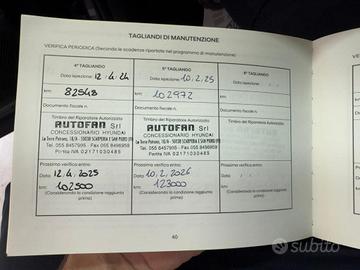 TAGLIANDI DI MANUTENZIONE
VERIFICA PERIODICA (Secondo le scadenze riportate nel programma di manutenzione)
4° TAGLIANDO
Data ispezione: 12.4.24
km: 82543
Documento fiscale n.
Timbro del Riparatore Autorizzato
AUTOFAN Srl
CONCESSIONARIO HYUNDAI
Tel. 055 8457915 - Fax 055 8496959
Partita IVA 02171030485
Prossima verifica entro:
Data 12.4.2025
km: 102500
(Considerando la condizione raggiunta prima)
5° TAGLIANDO
Data ispezione: 10.2.25
km: 102972
Documento fiscale n.
Timbro del Riparatore Autorizzato
AUTOFAN Srl
CONCESSIONARIO HYUNDAI
Tel. 055 8457915 - Fax 055 8496959
Partita IVA 02171030485
Prossima verifica entro:
Data 10.2.2026
km: 123000
(Considerando la condizione raggiunta prima)
6° TAGLIANDO
Data ispezione:
km:
Documento fiscale n.
Timbro del Riparatore Autorizzato
Prossima verifica entro:
Data
km:
(Considerando la condizione raggiunta prima)
40
subito